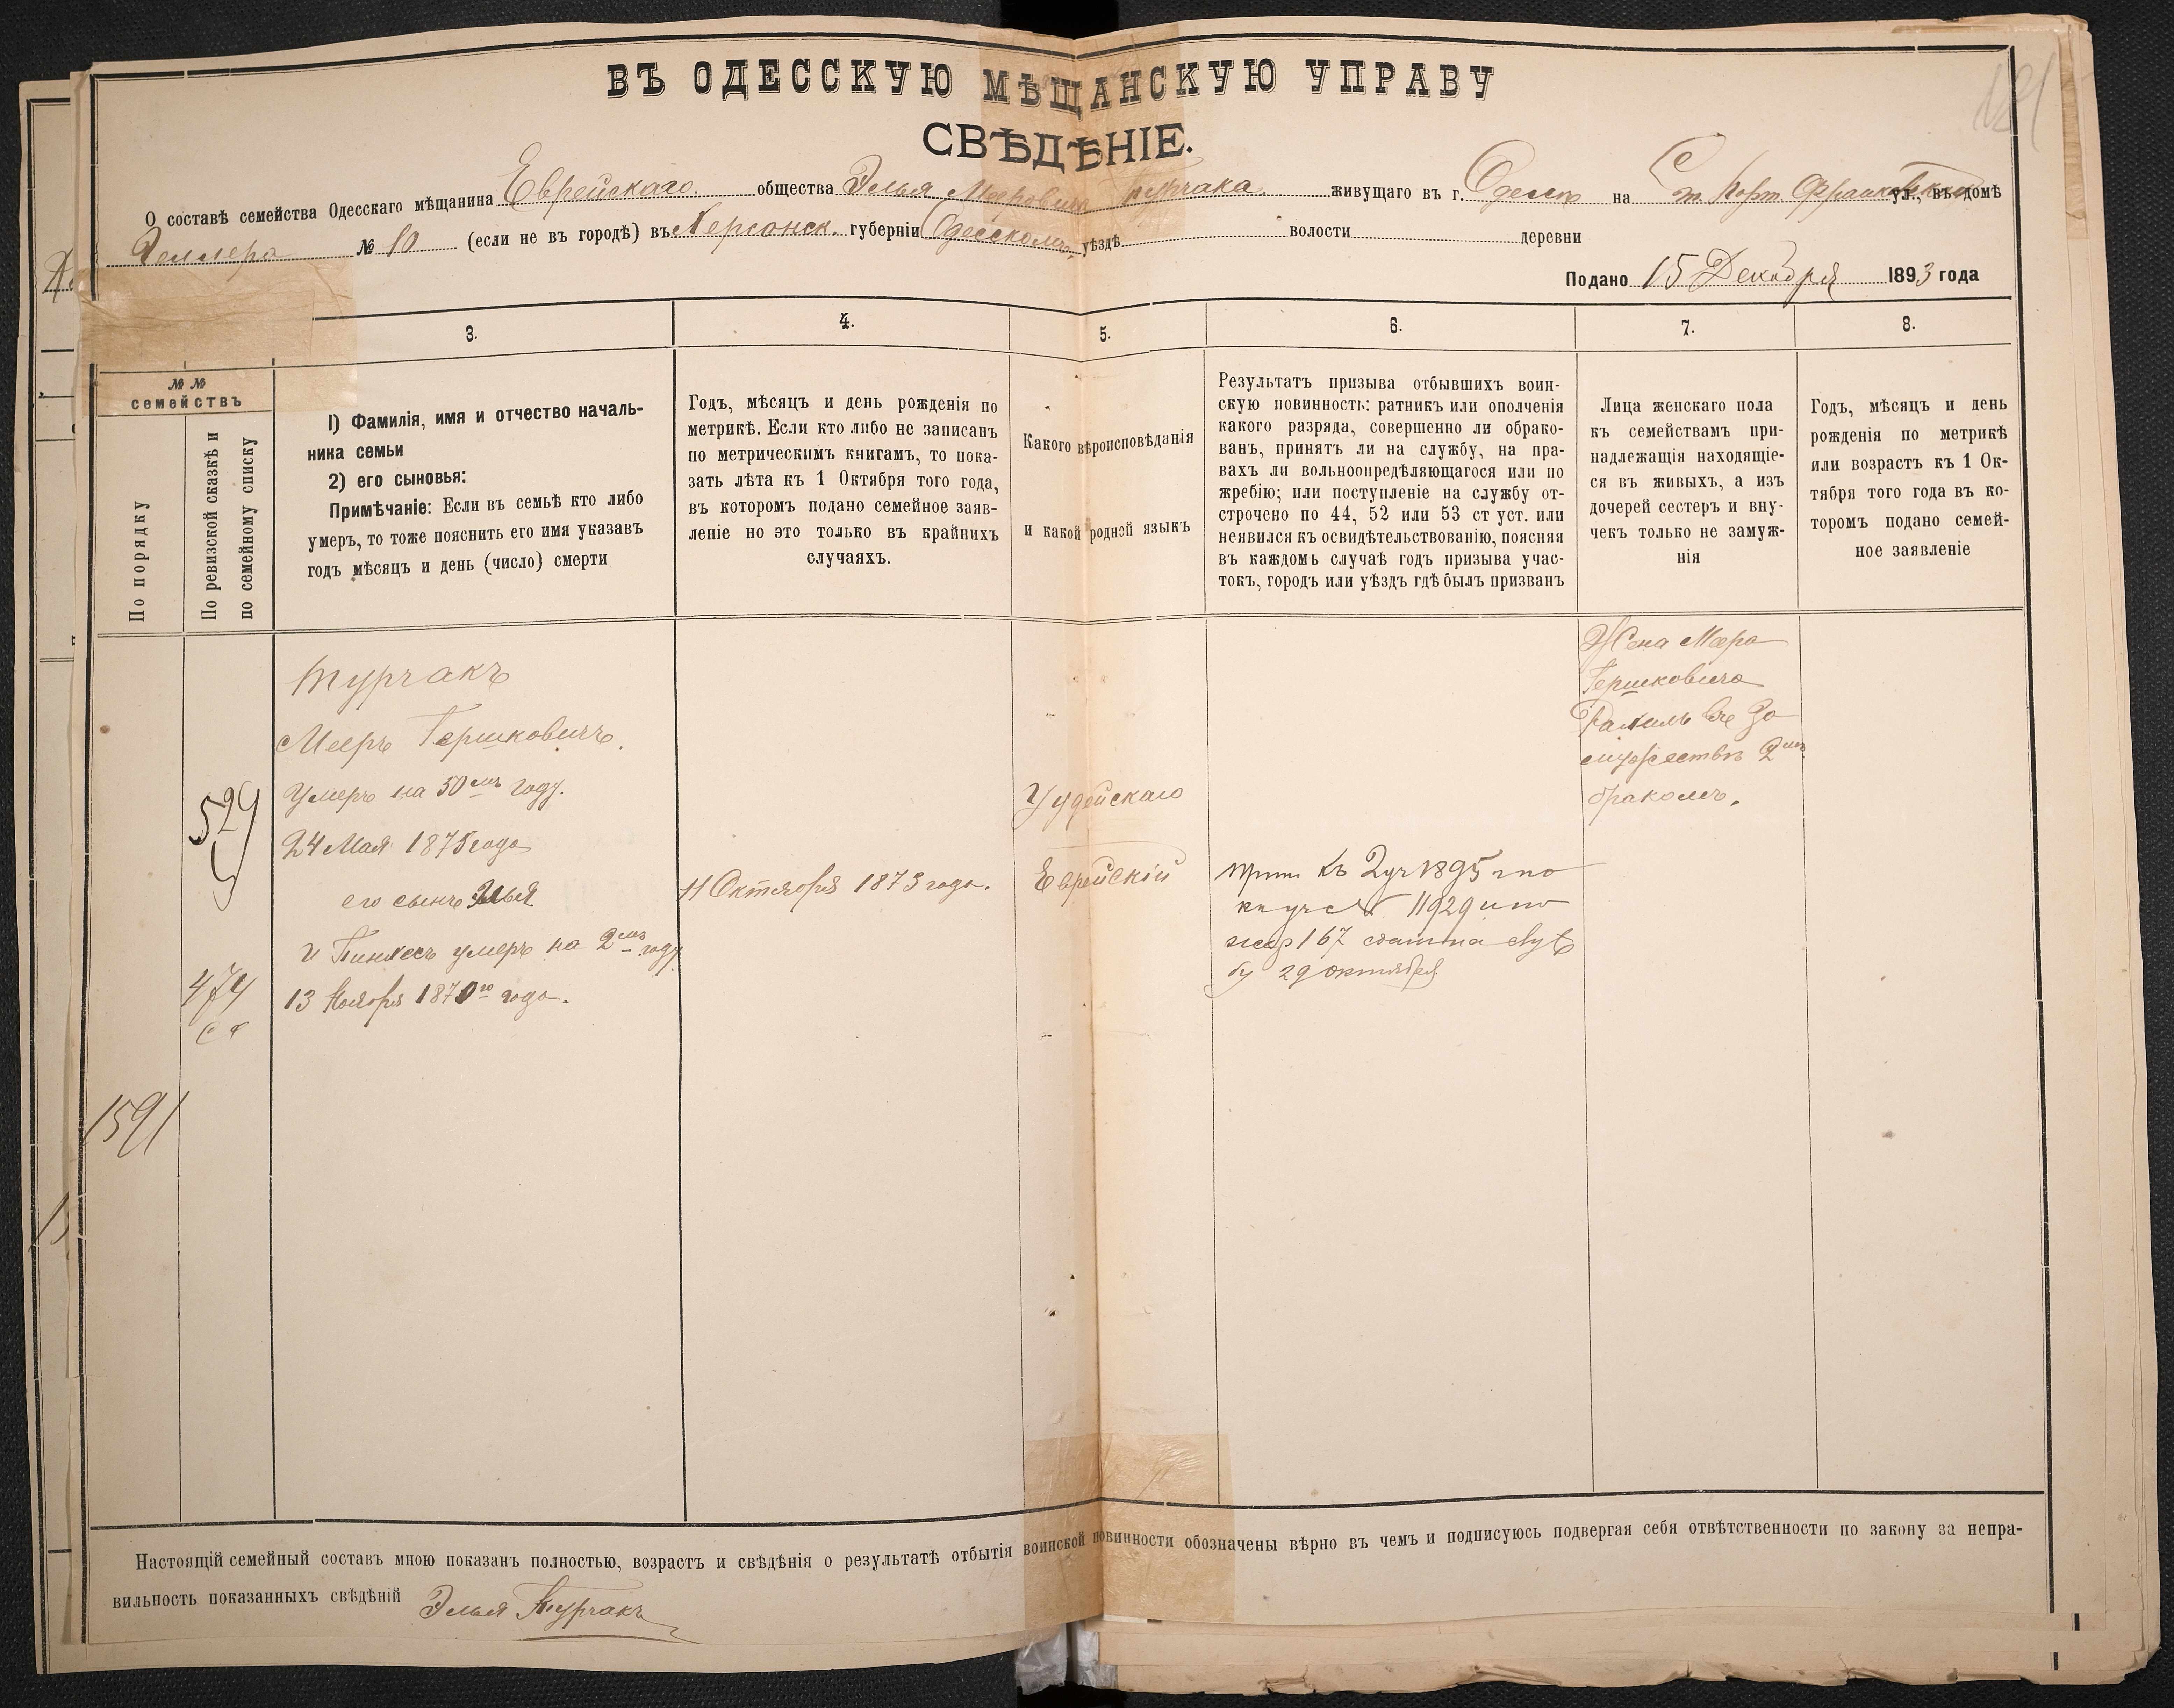 ВЪ ОДЕССКУЮ МѢЩАНСКУЮ УПРАВУ
СВѢДѢНІЕ.
О составѣ семейства Одесскаго мѣщанина Еврейскаго общества Элья Мееровича Турчака живущаго въ г. Одессѣ на ст. Порт. Франковской ул., въ домѣ
Геллера № 10 (если не въ городѣ) въ Херсонск. губерніи Одесскомъ уѣздѣ волости деревни
Подано 15 Декабря 1893 года
3.
4.
5.
6.
7.
8.
№ №
семействъ
По порядку
По ревизской сказкѣ и
по семейному списку
1) Фамилія, имя и отчество началь-
ника семьи
2) его сыновья:
Примѣчаніе: Если въ семьѣ кто либо
умеръ, то тоже пояснить его имя указавъ
годъ мѣсяцъ и день (число) смерти
Годъ, мѣсяцъ и день рожденія по
метрикѣ. Если кто либо не записанъ
по метрическимъ книгамъ, то пока-
зать лѣта къ 1 Октября того года,
въ которомъ подано семейное заяв-
леніе но это только въ крайнихъ
случаяхъ.
Какого вѣроисповѣданія
и какой родной языкъ
Результатъ призыва отбывшихъ воин-
скую повинность: ратникъ или ополченія
какого разряда, совершенно ли обрако-
ванъ, принятъ ли на службу, на пра-
вахъ ли вольноопредѣляющагося или по
жребію; или поступленіе на службу от-
строчено по 44, 52 или 53 ст уст. или
неявился къ освидѣтельствованію, поясняя
въ каждомъ случаѣ годъ призыва учас-
токъ, городъ или уѣздъ гдѣ былъ призванъ
Лица женскаго пола
къ семействамъ при-
надлежащія находящіе-
ся въ живыхъ, а изъ
дочерей сестеръ и вну-
чекъ только не замуж-
нія
Годъ, мѣсяцъ и день
рожденія по метрикѣ
или возрастъ къ 1 Ок-
тября того года въ ко-
торомъ подано семей-
ное заявленіе
Турчакъ
Мееръ Гершковичъ.
Умеръ на 50мъ году.
24 Мая 1875 года
его сынъ Элья
и Пинхесъ умеръ на 2мъ году
13 Ноября 1870го года.
529
474
1591
11 Октября 1873 года.
Іудейскаго
Еврейскій
къ 2 уч 1895 г по
11929 и по
жер 167 сдан на служ
бу 29 октября
Жена Меера
Гершковича
Рахиль въ за
мужествѣ 2мъ
бракомъ.
Настоящій семейный составъ мною показанъ полностью, возрастъ и свѣдѣнія о результатѣ отбытія воинской повинности обозначены вѣрно въ чемъ и подписуюсь подвергая себя отвѣтственности по закону за непра-
вильность показанныхъ свѣдѣній Элья Турчакъ